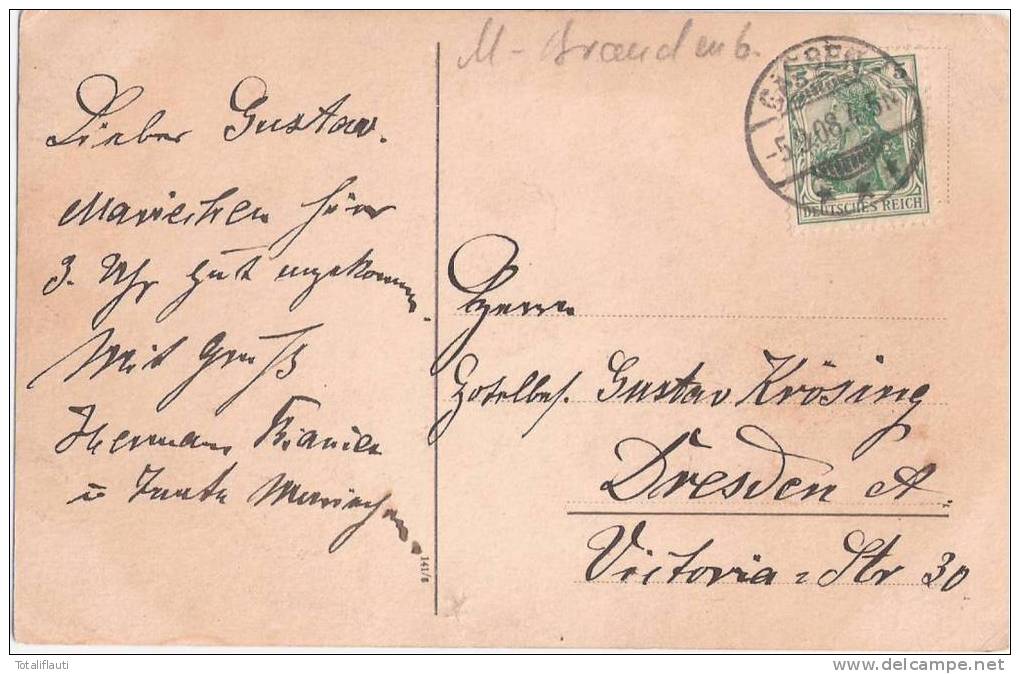 M - Brandenb.
Lieber Gustav.
Mariechen hier
3. Uhr gut angekommen.
Mit Gruß
Hermann
u Tante Mariechen.
GUBEN
5.9.08. 4-5N
* * 1
5 5
DEUTSCHES REICH
Herrn
Hotelbes. Gustav Krösing
Dresden A.
Victoria-Str 30
141/8
Totaliflauti
www.delcampe.net